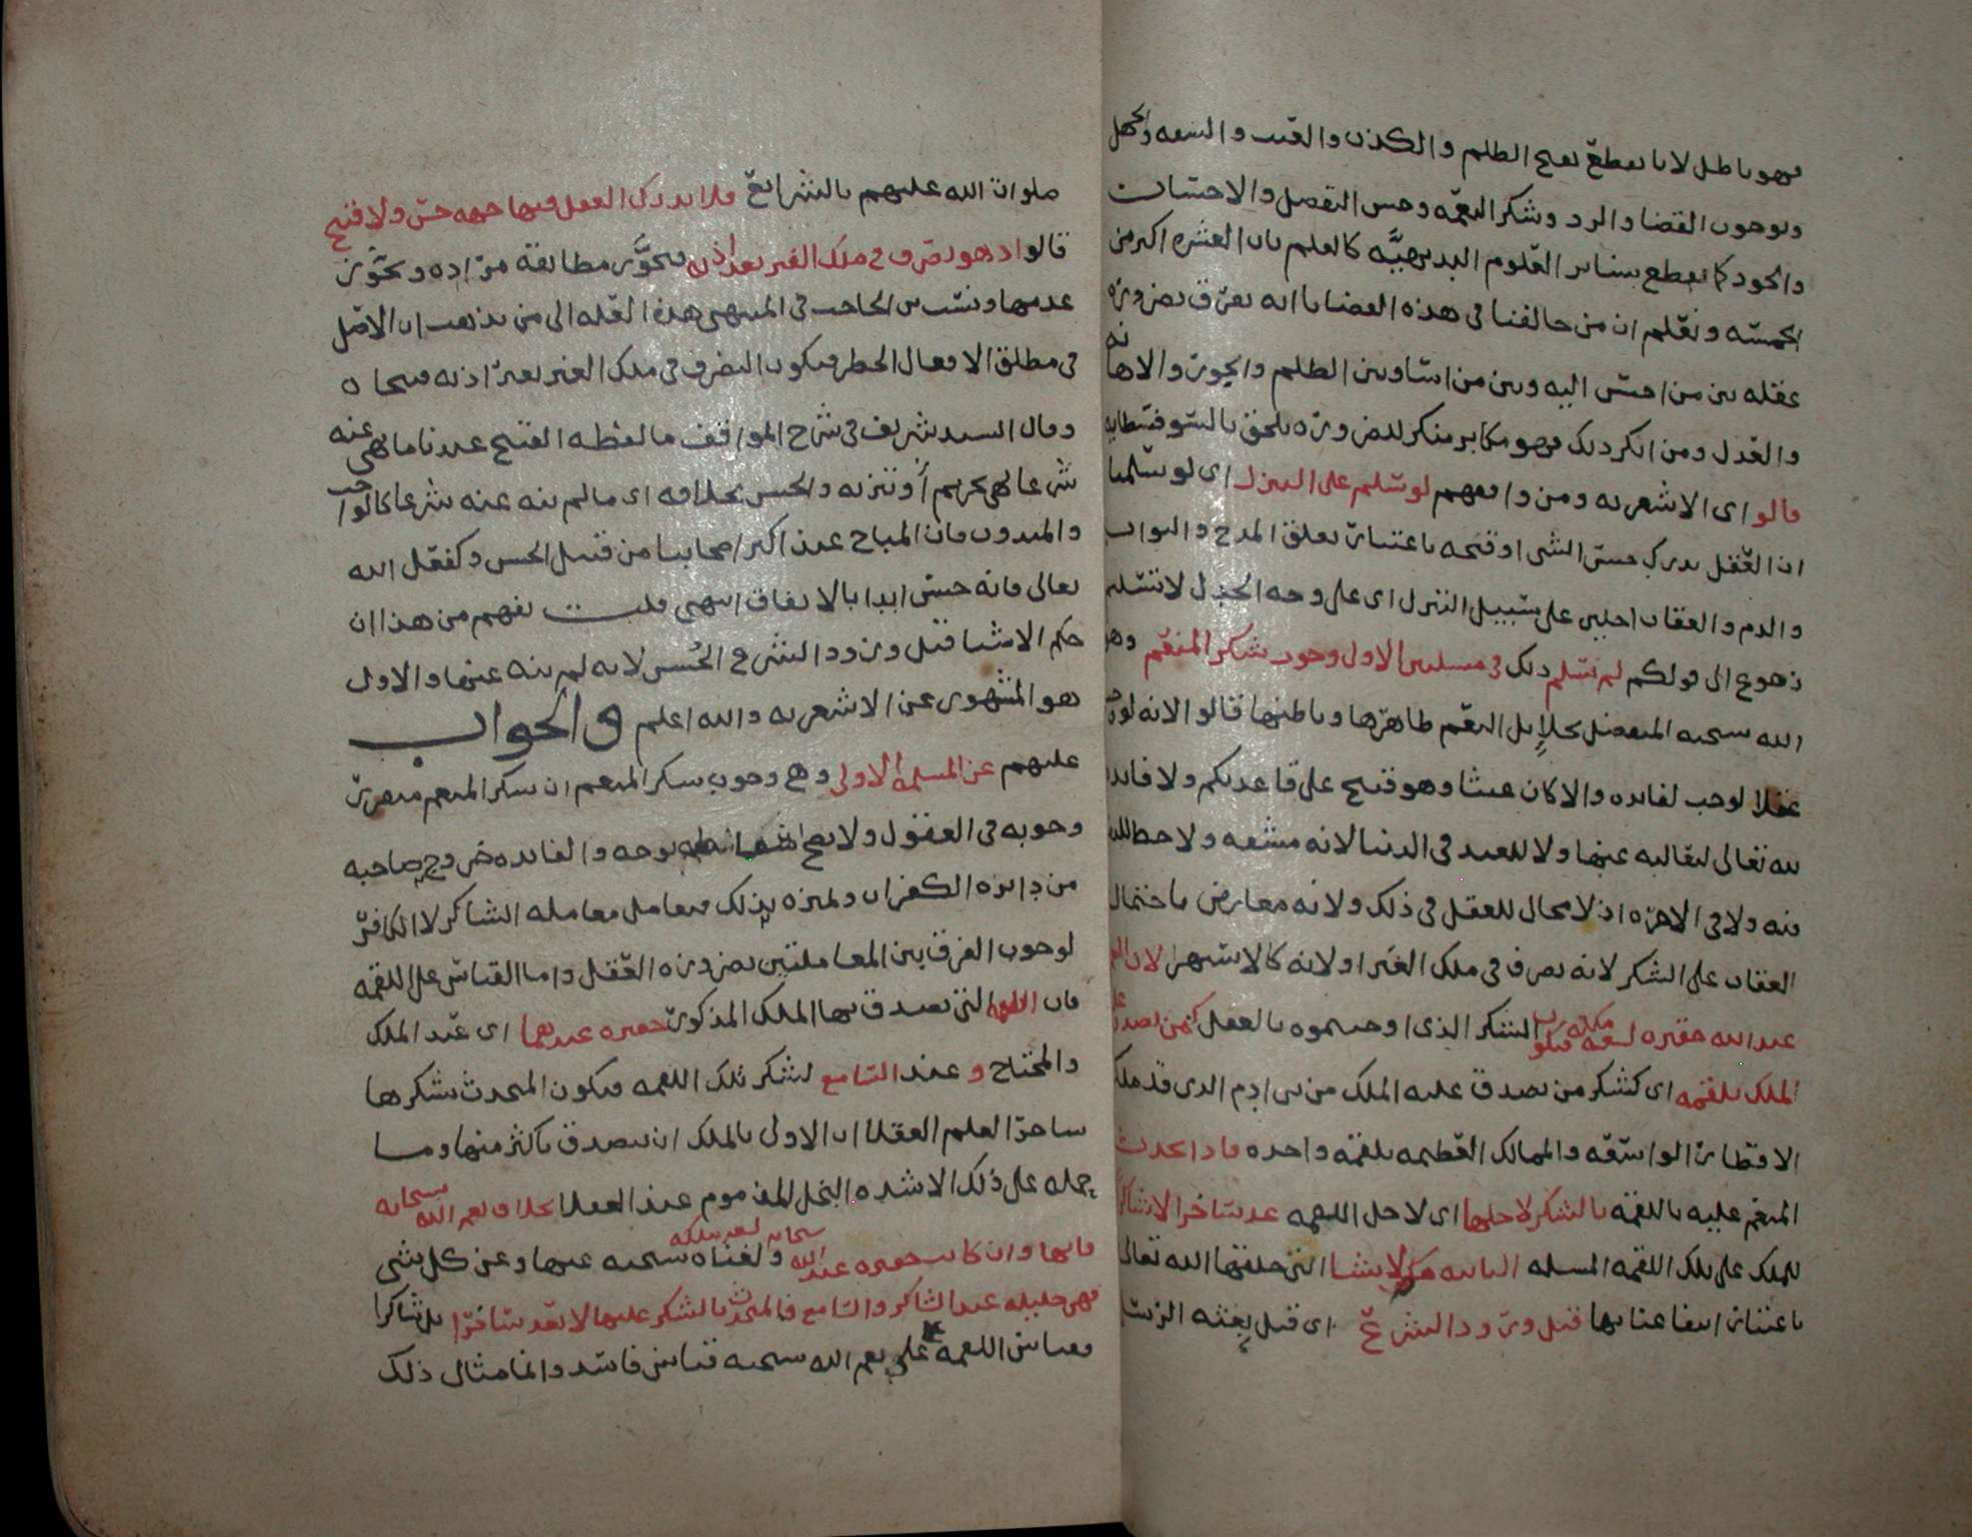 فهو باطل لانا نقطع بقبح الظلم والكذب والعبث والسفه والجهل
وبوجوب القضا والرد وشكر النعمه وحسن التفضل والاحسان
والجود كما نقطع بسائر العلوم البديهيَّه كالعلم بان العشره اكثر من
الخمسه ونعلم ان من خالفنا في هذه القضايا انه يفرق بضروره
عقله بين من احسن اليه وبين من اسا وبين الظلم والجور والاهانه
والعدل ومن انكر ذلك فهو مكابر منكر للضروره يلحق بالسوفسطايه
قالوا اي الاشعريه ومن وافقهم لو سلم على التنزل اي لو سلمنا
ان العقل يدرك حسن الشي او قبحه باعتبار تعلق المدح والثواب
والذم والعقاب اجلين على سبيل التنزل اي على وجه الجدل لا تسليم
رجوع الى قولكم لم نسلم ذلك في مسلتين الاولى وجوب شكر المنعم وهو
الله سبحنه المتفضل بجلايل النعم ظاهرها وباطنها قالوا لانه لو وجب
عقلا لوجب لفايده والا كان عبثا وهو قبيح على قاعدتكم ولا فايده
لله تعالى لتعاليه عنها ولا للعبد في الدنيا لانه مشقه ولا حظ للنفس
فيه ولا في الاخره اذ لا مجال للعقل في ذلك ولانه معارض باحتمال
العقاب على الشكر لانه تصرف في ملك الغير او لانه كالاستهزا لان النعم
عند الله حقيره لسعه ملكه فيكون الشكر الذي اوجبتموه بالعقل كمن تصدق عليه
الملك بلقمه اي كشكر من تصدق عليه الملك من بني ادم الذي قد ملك
الاقطار الواسعه والممالك العظيمه بلقمه واحده فاذا تحدث
المنعم عليه باللقمه بالشكر لاجلها اي لاجل اللقمه عد ساخرا لا شاكرا
للملك على تلك اللقمه المسله الثانيه حكم الاشيا التي خلقها الله تعالى
باعتبار انتفاعنا بها قبل ورود الشرع اي قبل بعثه الرسل
صلوات الله عليهم بالشرائع فلا يدرك العقل فيها جهه حسن ولا قبح
قالوا اذ هو تصرف في ملك الغير بغير اذنه فيجوَّز مطابقة مراده ويجوّز
عدمها ونسب ابن الحاجب في المنتهى هذه العله الى من يذهب ان الاصل
في مطلق الافعال الحظر فيكون التصرف في ملك الغير بغير اذنه قبيحا ه
وقال السيد شريف في شرح المواقف ما لفظه القبيح عندنا ما نهي عنه
شرعا نهي تحريم أو تنزيه والحسن بخلافه اي ما لم ينه عنه شرعا كالواجب
والمندوب فان المباح عند اكثر اصحابنا من قبيل الحسن وكفعل الله
تعالى فانه حسن ابدا بالاتفاق انتهى قلت يفهم من هذا ان
حكم الاشيا قبل ورود الشرع الحُسن لانه لم ينه عنها والاول
هو المشهور عن الاشعريه والله اعلم و الجواب
عليهم عن المسله الاولى وهي وجوب شكر المنعم ان شكر المنعم متقرر
وجوبه في العقول ولا يصح بوجه والفايده خروج صاحبه
من دايره الكفران وتميزه بذلك فيعامل معامله الشاكر لا الكافر
لوجوب الفرق بين المعاملتين بضروره العقل واما القياس على اللقمه
فان اللقمه التي تصدق بها الملك المذكور حقيره عندهما اي عند الملك
والمحتاج و عند السامع لشكر تلك اللقمه فيكون المتحدث بشكرها
ساخرا لعلم العقلا ان الاولى بالملك ان يتصدق باكثر منها وما
حمله على ذلك الا شده البخل المذموم عند العقلا بخلاف نعم الله سبحانه
فانها وان كانت حقيره عند الله سبحانه لسعه ملكه ولغناه سبحنه عنها وعن كل شي
فهي جليله عند الشاكر والسامع فالمتحدث بالشكر عليها لا يعد ساخرا بل شاكرا
فقياس اللقمه على نعم الله سبحنه قياس فاسد وانما مثال ذلك